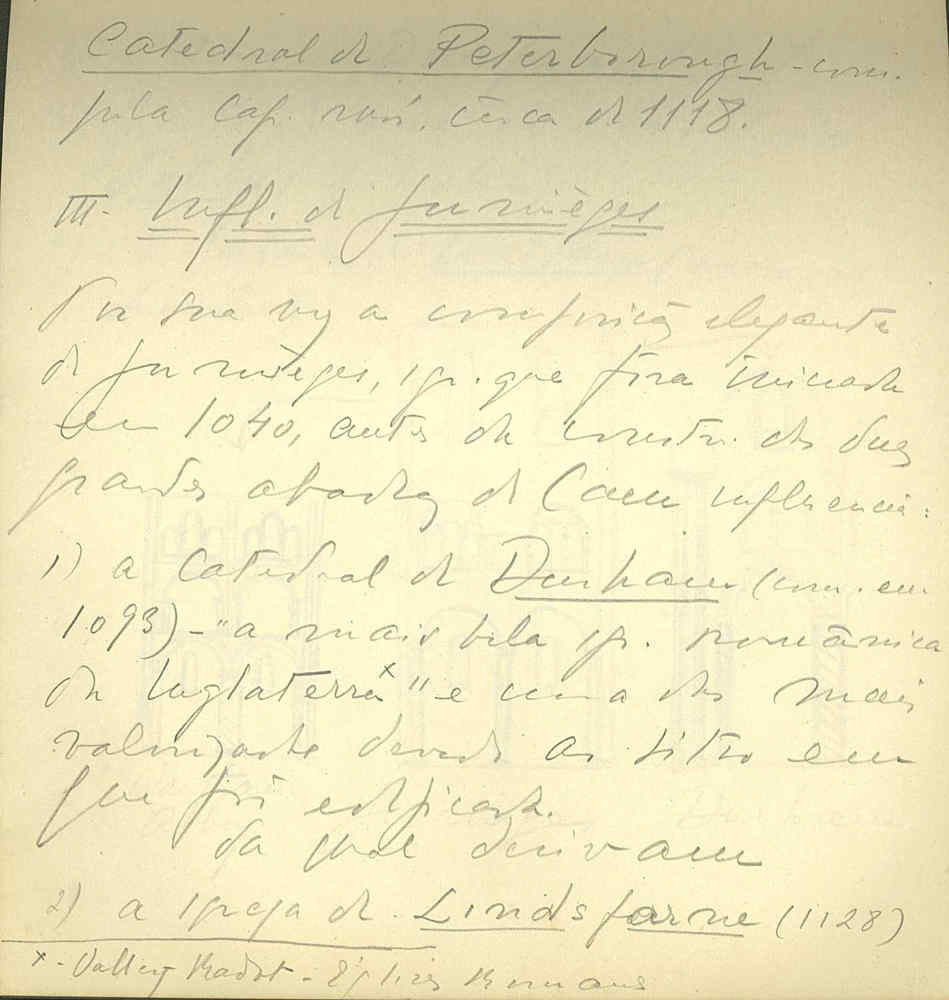 Catedral de Peterborough - com.
pela cap. mór. cêrca de 1118.
III - Infl. de Jumièges
Por sua vez a composição elegante
de Jumièges, igr. que fôra iniciada
em 1040, antes da constr. das duas
grandes abadias de Caen influencia:
1) a Catedral de Durham (com. em
1093) - "a mais bela igr. românica
da Inglaterra x" e uma das mais
valorizada devido ao sitio em
que foi edificada.
da qual derivam
2) a igreja de Lindsfarne (1128)
x - Vallery Radot - Églises Romans